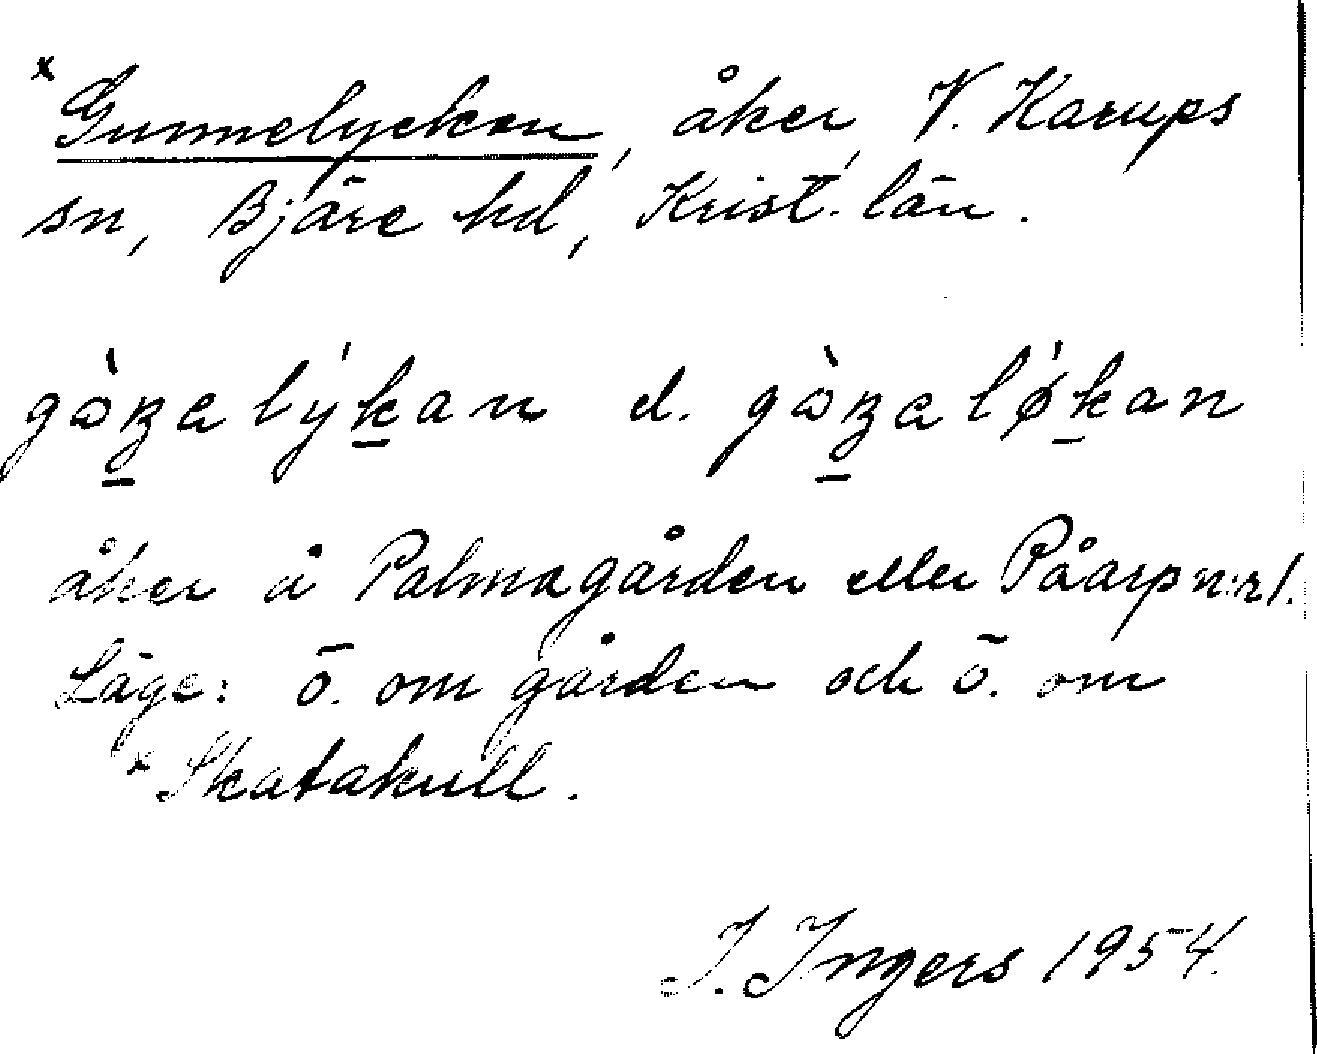 x Gunnelyckan, åker, V. Karups
sn, Bjäre hd, Krist. län.
åker å Palmagården eller Påarp n:r 1.
Läge: ö. om gården och ö. om
x Skatakull.
I. Ingers 1954.